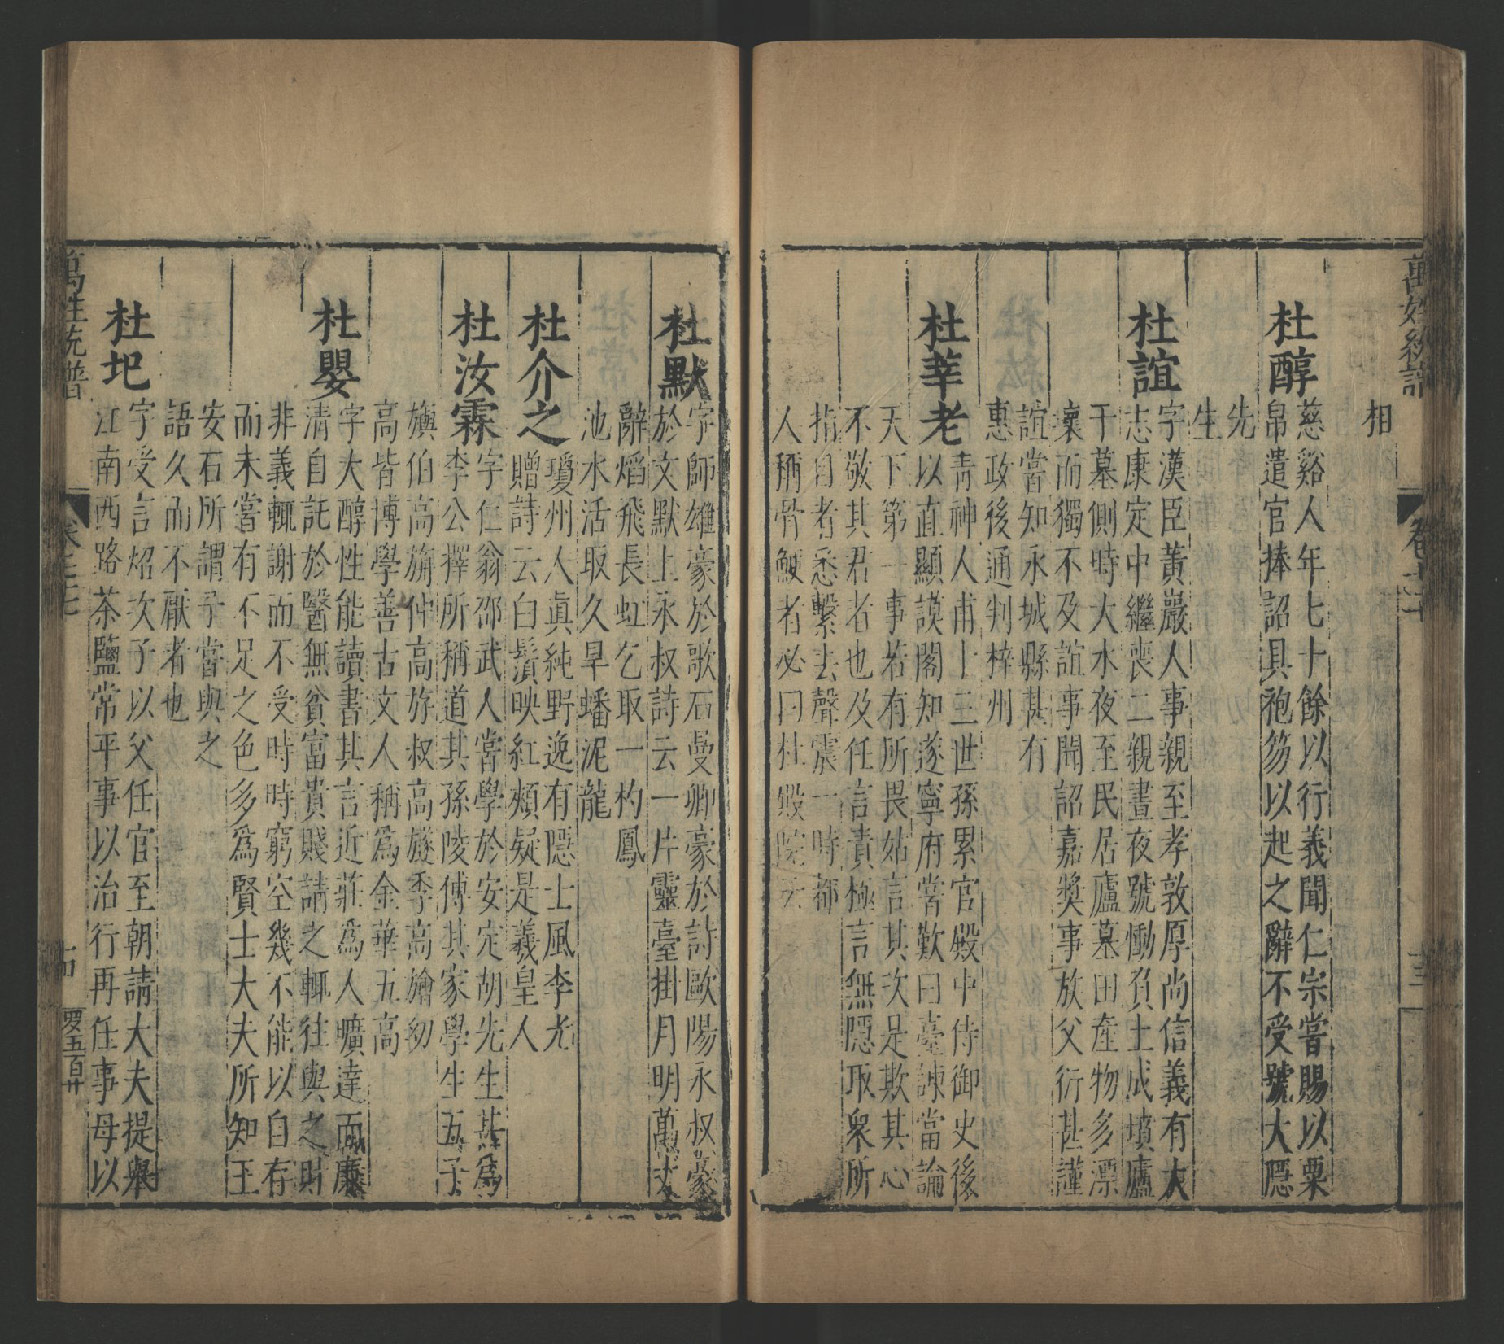 萬姓統譜
相
杜醇
慈谿人年七十餘以行義聞仁宗嘗賜以粟
帛遣官捧詔具袍笏以起之辭不受號大隱
先
生
杜誼
字漢臣黃巖人事親至孝敦厚尚信義有大
志康定中繼喪二親晝夜號慟負土成墳廬
于墓側時大水夜至民居廬墓田產物多漂
壞而獨不及誼事聞詔嘉奬事族父衍甚謹
誼嘗知永城縣甚有
惠政後通判梓州
杜莘老
青神人甫十三世孫累官殿中侍御史後
以直顯謨閣知遂寧府嘗歎曰臺諫當論
天下第一事若有所畏姑言其次是欺其心
不敬其君者也及任言責極言無隱取衆所
指目者悉繫去聲震一時都
人稱骨鯁者必曰杜殿院云
杜默
字師雄豪於歌石曼卿豪於詩歐陽永叔豪
於文默上永叔詩云一片靈臺掛月明萬丈
辭熖飛長虹乞取一杓鳳
池水活取久旱蟠泥龍
杜介之
瓊州人眞純野逸有隱士風李光
贈詩云白鬚映紅頰疑是羲皇人
杜汝霖
字仁翁邵武人嘗學於安定胡先生甚爲
李公擇所稱道其孫陵傅其家學生五子
旟伯高旃仲高斿叔高旞季高旝幼
高皆博學善古文人稱爲金華五高
杜嬰
字大醇性能讀書其言近莊爲人曠達而廉
清自託於醫無貧富貴賤請之輒往與之財
非義輒謝而不受時時窮空幾不能以自存
而未嘗有不足之色多爲賢士大夫所知王
安石所謂予嘗與之
語久而不厭者也
杜圯
字受言炤次子以父任官至朝請大夫提舉
江南西路茶鹽常平事以治行再任事母以
萬姓統譜
十四